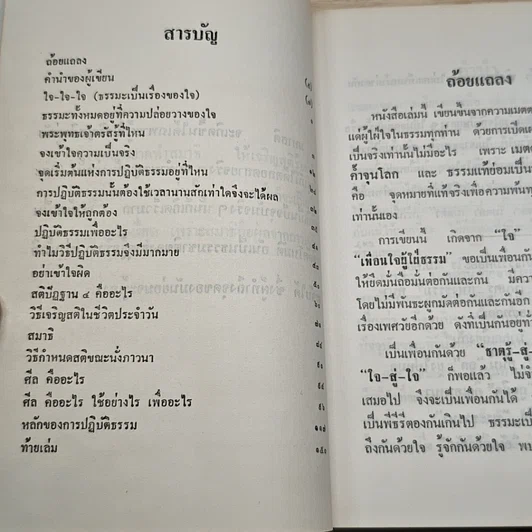 สารบัญ
ถ้อยแถลง
คำนำของผู้เขียน
ใจ-ใจ-ใจ (ธรรมะเป็นเรื่องของใจ)
ธรรมะทั้งหมดอยู่ที่ความปล่อยวางของใจ
พระพุทธเจ้าตรัสรู้ที่ไหน
จงเข้าใจความเป็นจริง
จุดเริ่มต้นแห่งการปฏิบัติธรรมอยู่ที่ไหน
การปฏิบัติธรรมนั้นต้องใช้เวลานานสักเท่าใดจึงจะได้ผล
จงเข้าใจให้ถูกต้อง
ปฏิบัติธรรมเพื่ออะไร
ทำไมวิธีปฏิบัติธรรมจึงมีมากมาย
อย่าเข้าใจผิด
สติปัฏฐาน ๔ คืออะไร
วิธีเจริญสติในชีวิตประจำวัน
สมาธิ
วิธีกำหนดสติขณะนั่งภาวนา
ศีล คืออะไร
ศีล คืออะไร ใช้อย่างไร เพื่ออะไร
หลักของการปฏิบัติธรรม
ท้ายเล่ม
ถ้อยแถลง
หนังสือเล่มนี้ เขียนขึ้นจากความเมตต
แด่ผู้ใฝ่ใจในธรรมทุกท่าน ด้วยการเปิดเผ
เป็นจริงเท่านั้นไม่มีอะไร เพราะ เมต
ค้ำจุนโลก และ ธรรมแท้ย่อมเป็น
คือ จุดหมายที่แท้จริงเพื่อความพ้นทุ
เท่านั้นเอง
การเขียนนี้ เกิดจาก "ใจ"
"เพื่อนใจผู้ใฝ่ธรรม" ขอเป็นเพื่อน
ให้ยึดมั่นถือมั่นต่อกันและกัน มีควา
โดยไม่มีพันธะผูกมัดต่อกันและกันอีก
เรื่องเพศวัยอีกด้วย ดังที่เป็นกันอยู่ทั่
เป็นเพื่อนกันด้วย "ธาตุรู้-สู่-
"ใจ-สู่-ใจ" ก็พอแล้ว ไม่จำ
เสมอไป จึงจะเป็นเพื่อนกันได้
เป็นพิธีรีตองกันเกินไป ธรรมะเป็
ถึงกันด้วยใจ รู้จักกันด้วยใจ พบ